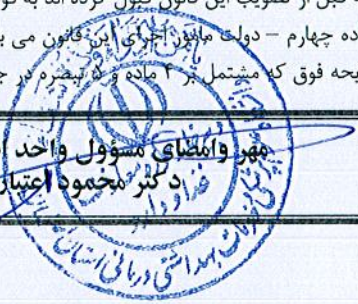 قبل از تصویب این قانون قبول کرده اند به تو
ده چهارم – دولت مأمور اجرای این قانون می ب
یحه فوق که مشتمل بر ۴ ماده و ۵ تبصره در ج
مهر وامضای مسؤول واحد
دکتر محمود اعتبار
غذا و دارو
بهداشتی درمانی استان